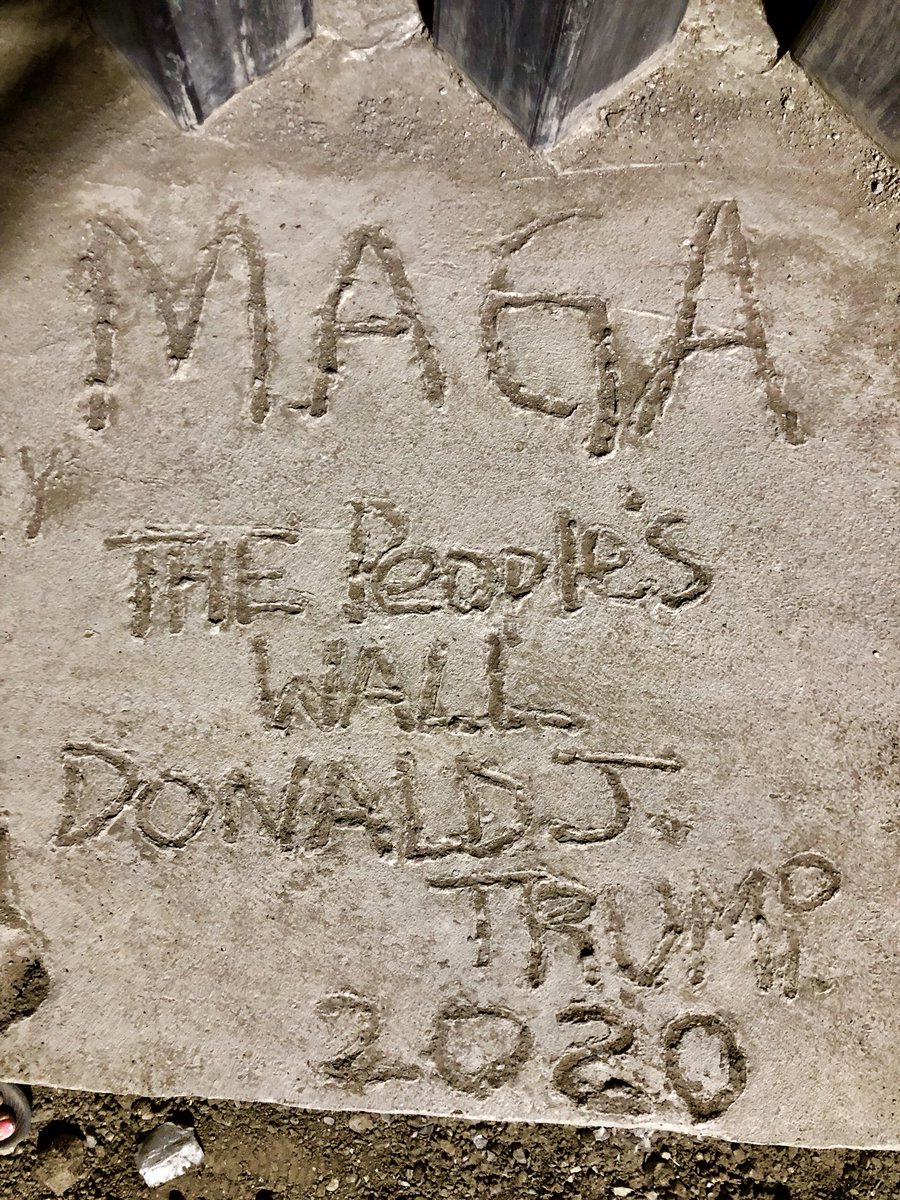 MAGA
THE People's
WALL
DONALD J.
TRUMP
2020